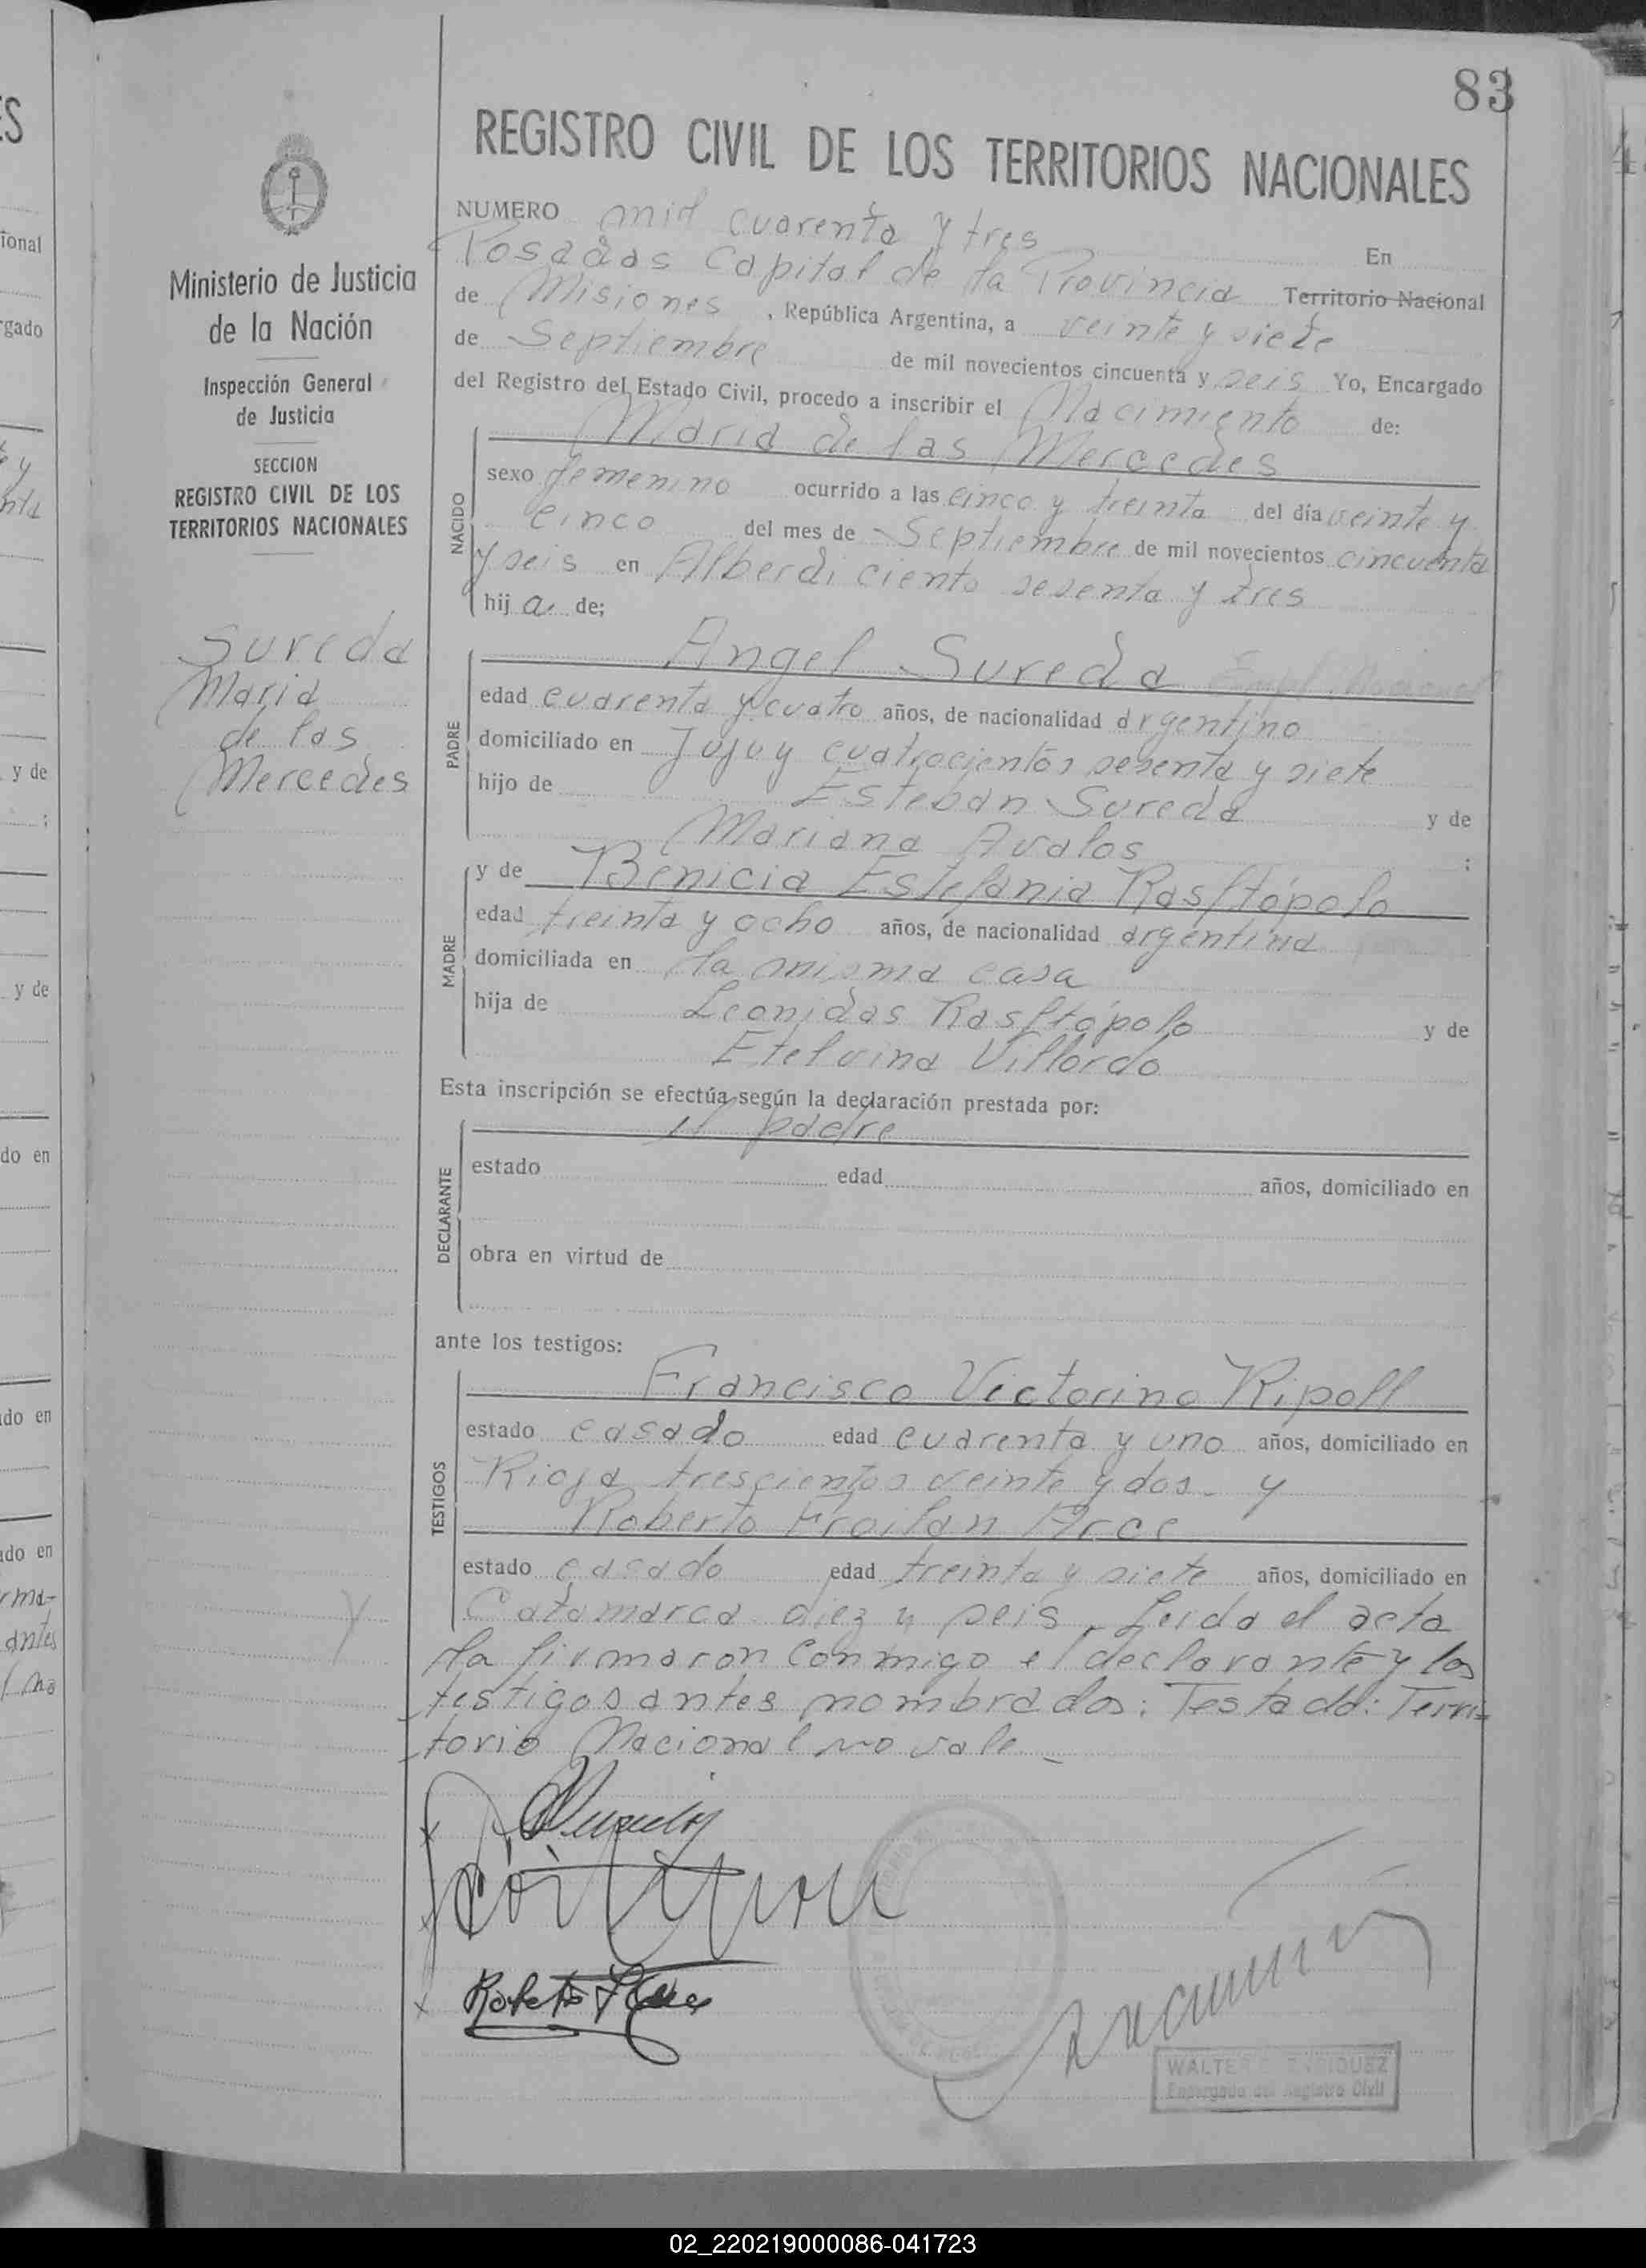 83
REGISTRO CIVIL DE LOS TERRITORIOS NACIONALES
Ministerio de Justicia
de la Nación
Inspección General
de Justicia
SECCION
REGISTRO CIVIL DE LOS
TERRITORIOS NACIONALES
Sureda
Maria
de las
Mercedes
NUMERO mil cuarenta y tres En
Posadas Capital de la Provincia Territorio Nacional
de Misiones, República Argentina, a veinte y siete
de Septiembre de mil novecientos cincuenta y seis Yo, Encargado
del Registro del Estado Civil, procedo a inscribir el Nacimiento de:
NACIDO
Maria de las Mercedes
sexo femenino ocurrido a las cinco y treinta del día veinte y
cinco del mes de Septiembre de mil novecientos cincuenta
y seis en Alberdi ciento sesenta y tres
hija de;
PADRE
Angel Sureda Empl. Nacional
edad cuarenta y cuatro años, de nacionalidad argentino
domiciliado en Jujuy cuatrocientos sesenta y siete
hijo de Esteban Sureda y de
Mariana Avalos ;
MADRE
y de Benicia Estefania Rasftópolo
edad treinta y ocho años, de nacionalidad argentina
domiciliada en la misma casa
hija de Leonidas Rasftópolo y de
Etelvina Villordo
Esta inscripción se efectúa según la declaración prestada por:
DECLARANTE
el padre
estado edad años, domiciliado en
obra en virtud de
ante los testigos:
TESTIGOS
Francisco Victorino Ripoll
estado casado edad cuarenta y uno años, domiciliado en
Rioja trescientos veinte y dos - y
Roberto Froilan Arce
estado casado edad treinta y siete años, domiciliado en
Catamarca diez y seis. Leida el acta
la firmaron conmigo el declarante y los
testigos antes nombrados: Testado: Terri-
torio Nacional no vale -
WALTER
Encargado del Registro Civil
02_220219000086-041723